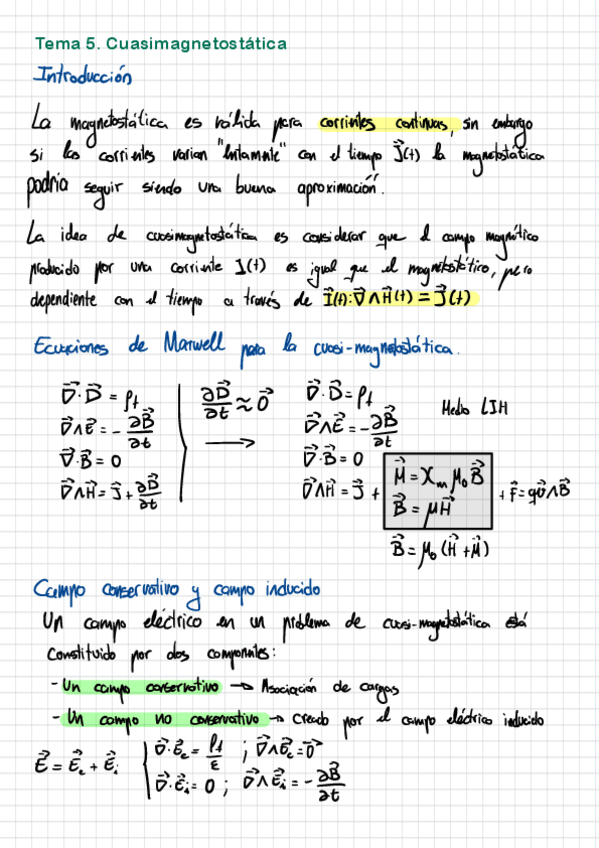 Tema 5. Cuasimagnetostática
Introducción
La magnetostática es válida para corrientes continuas, sin embargo
si las corrientes varian "lentamente" con el tiempo J⃗(t) la magnetostática
podría seguir siendo una buena aproximación".
La idea de cuasimagnetostática es considerar que el campo magnético
producido por una corriente I(t) es igual que el magnetostático, pero
dependiente con el tiempo a través de I⃗(t): ∇⃗∧H⃗(t) = J⃗(t)
Ecuaciones de Maxwell para la cuasi-magnetostática.
∇⃗·D⃗ = ρf
∇⃗∧E⃗ = - ∂B⃗/∂t
∇⃗·B⃗ = 0
∇⃗∧H⃗ = J⃗ + ∂D⃗/∂t
∂D⃗/∂t ≈ 0⃗
→
∇⃗·D⃗ = ρf
∇⃗∧E⃗ = - ∂B⃗/∂t
∇⃗·B⃗ = 0
∇⃗∧H⃗ = J⃗ +
Medio LIH
M⃗ = χm μ0 B⃗
B⃗ = μH⃗
+ F⃗ = qv⃗∧B⃗
B⃗ = μ0 (H⃗ + M⃗)
Campo conservativo y campo inducido
Un campo eléctrico en un problema de cuasi-magnetostática está
constituido por dos componentes:
- Un campo conservativo → Asociación de cargas
- Un campo no conservativo → Creado por el campo eléctrico inducido
E⃗ = E⃗c + E⃗i
∇⃗·E⃗c = ρf/ε ; ∇⃗∧E⃗c = 0⃗
∇⃗·E⃗i = 0 ; ∇⃗∧E⃗i = - ∂B⃗/∂t